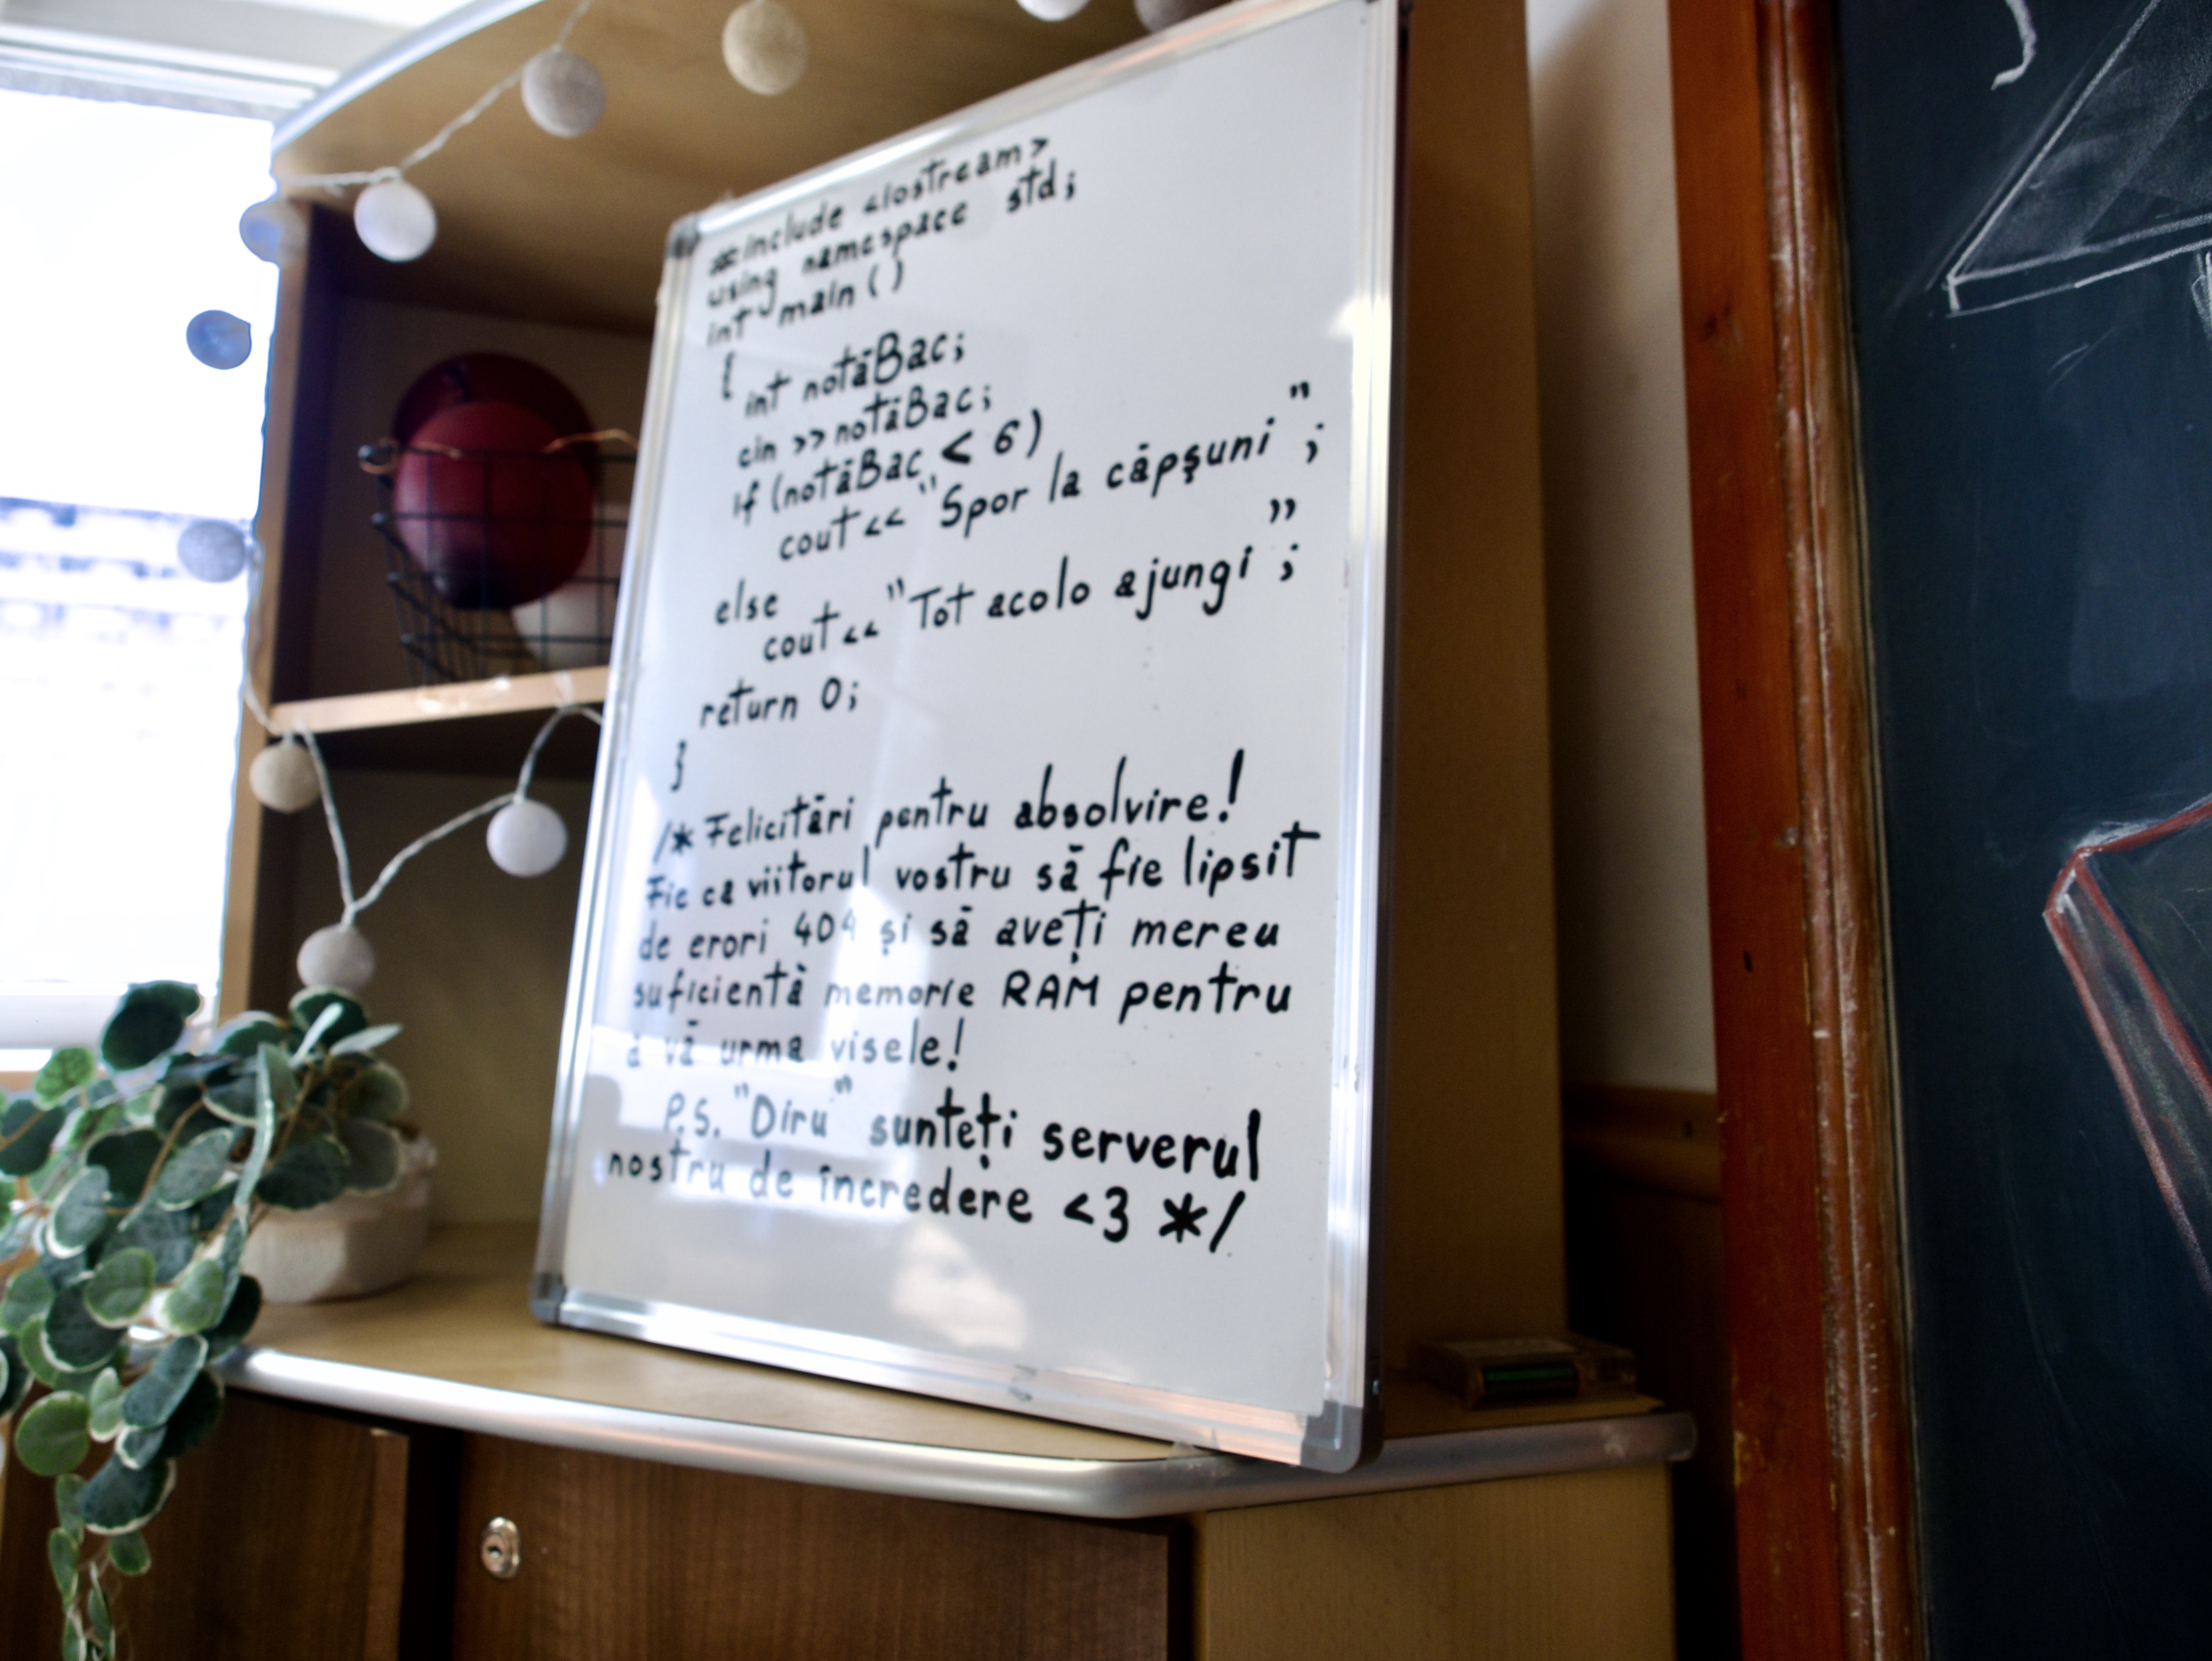 #include <iostream>
using namespace std;
int main ()
{
int notăBac;
cin >> notăBac;
if (notăBac < 6)
cout << "Spor la căpşuni";
else
cout << "Tot acolo ajungi";
return 0;
}
/* Felicitări pentru absolvire!
Fie ca viitorul vostru să fie lipsit
de erori 404 şi să aveţi mereu
suficientă memorie RAM pentru
a vă urma visele!
P.S. "Diru" sunteţi serverul
nostru de încredere <3 */